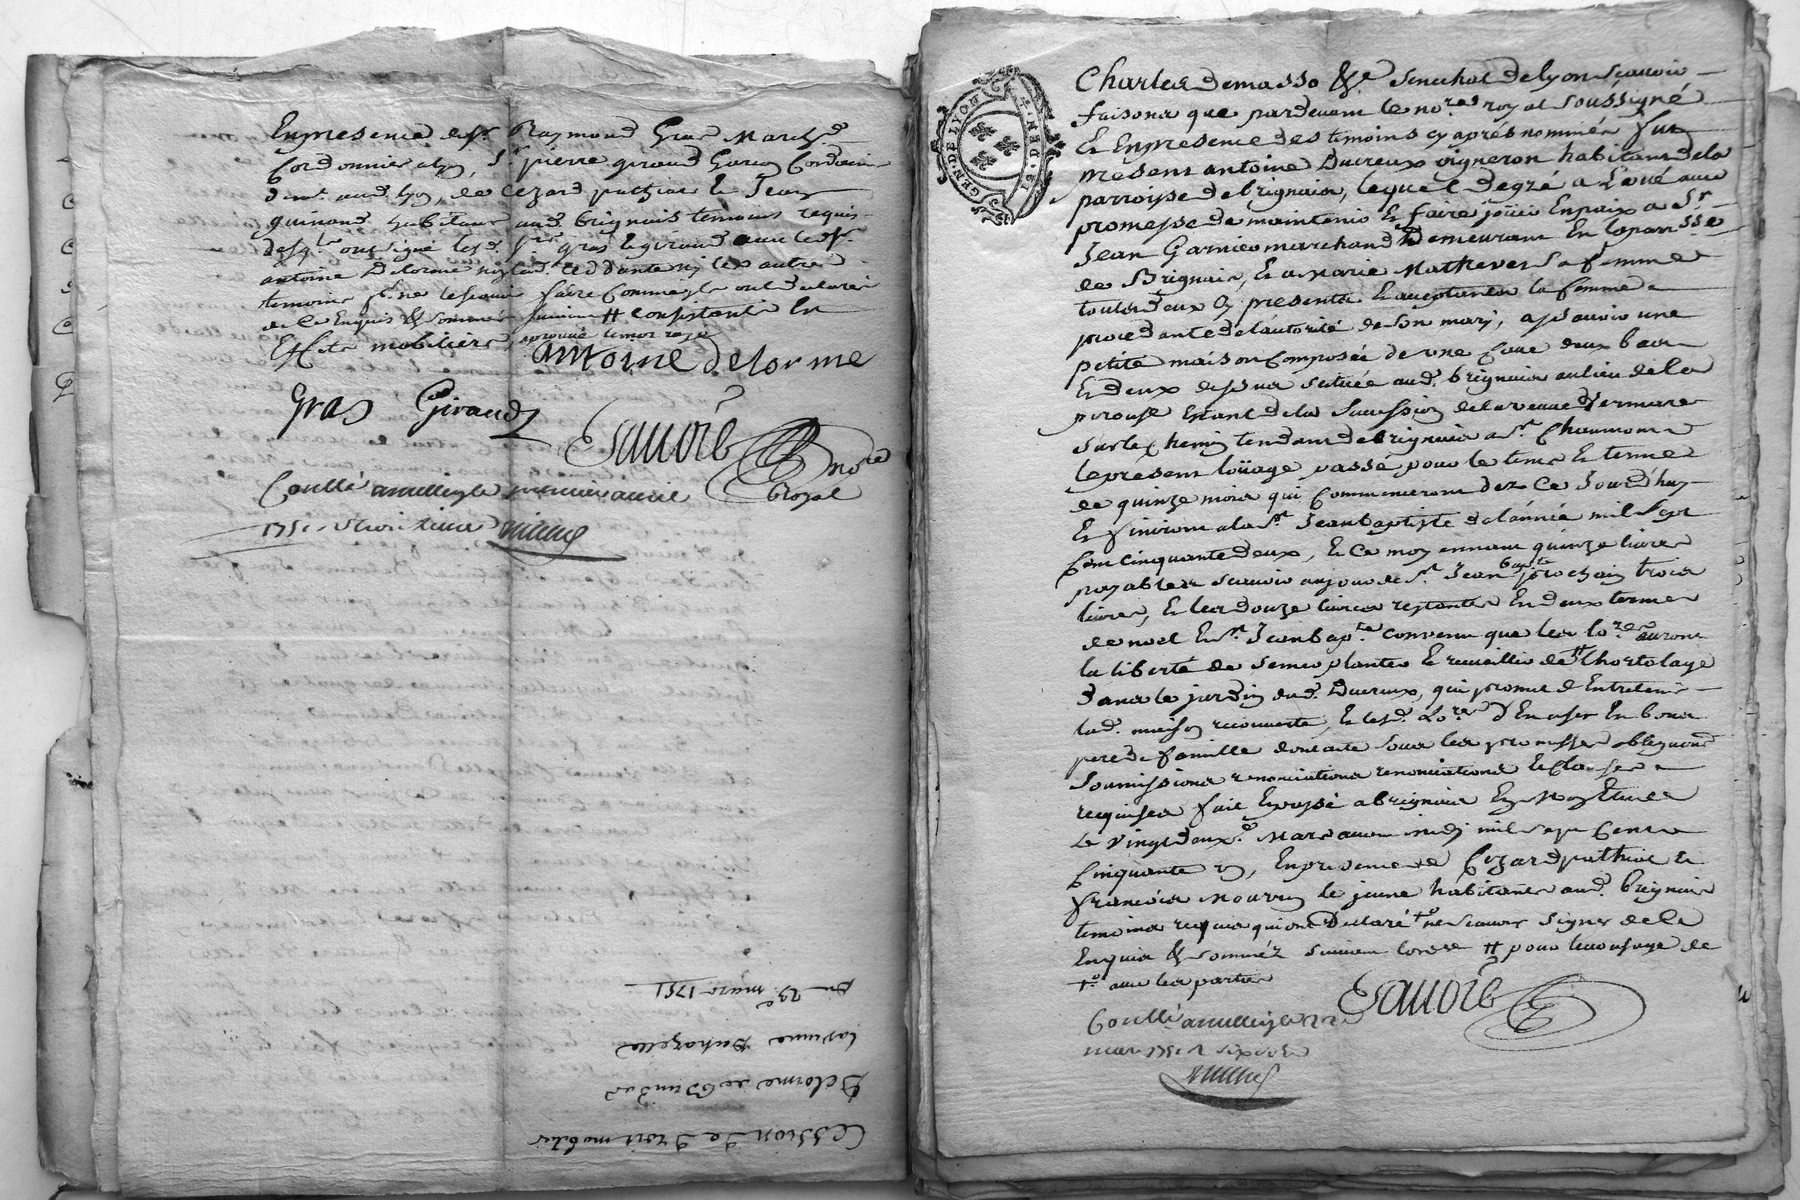 En presence de sr. Raymond Gras March.d
Cordonnier a lyon, sr. pierre giraud Garçon Cordonnier
dem.t aud. lyon, de Cezard puthiat & Jean
guinand habitans aud. brignais temoins requis
desq.ls ont signé lesd. srs. gras & giraud avec led. sr.
antoine Delorme
temoins pr. ne le scavoir faire Comme ils ont declaré
de Ce Enquis & sommés suivant # consistants En
Effets mobiliers, aprouvé
antoine delorme
Gras Giraud
Esauoié nore
Royal
Conllé a millery le premier avril
1751
GEN. DE LYON
Charles demasso &c. Senechal de lyon scavoir
faisons que pardevant le no.re royal soussigné
& En presence des temoins cy aprés nommés fut
present antoine Ducreux vigneron habitant de la
parroisse de brignais, lequel de gré a Loué avec
promesse de maintenir & faire joüir En paix a Sr.
Jean Garnier marchand Demeurant En la parr.sse
de Brignais, & a Marie Mathevet sa femme
tous deux Cy presents & acceptants la femme
procedante de l'autorité de son mary, a scavoir une
petite maison Composée de une Cave deux bas
& deux dessus scituée aud. brignais au lieu de la
pirouse Estant de la succession de la veuve
sur le Chemin tendant de brignais a st. Chaumond
le present loüage passé pour le tems & terme
de quinze mois qui Commenceront dez Ce Jourd'huy
& finiront a la St. Jean baptiste de l'année mil sept
Cent cinquante deux, & Ce moyennant quinze livres
payables scavoir au jour de St. Jean bapte prochain trois
livres, & les douze livres restantes En deux termes
de noel & St. Jean bap.te convenu que les lo.res auront
la liberté de semer planter & recueillir de # l'hortolage
dans le jardin dud. Ducreux, qui promet d'Entretenir
lad. maison recouverte, & lesd. Lo.res d'En user En bons
pere de famille dont acte sous les promesses obligaons
soumissions renonciations renonciations & Clauses
requises fait & passé a brignais En Mon Etude
le vingt deux.e Mars avant midy mil sept Cents
Cinquante un, En presence de Cezard puthiat &
François Mouron le jeune habitants aud. brignais
temoins requis qui ont Declaré +o ne scavoir signer de Ce
Enquis & sommés suivant l'ord.e # pour leur usage de
+o avec les parties
Esauoié
Conllé a millery le 22
mars 1751 R six sols
Cession de droit mobilier
Delorme
la veuve Duchazelle
Du 23.e mars 1751